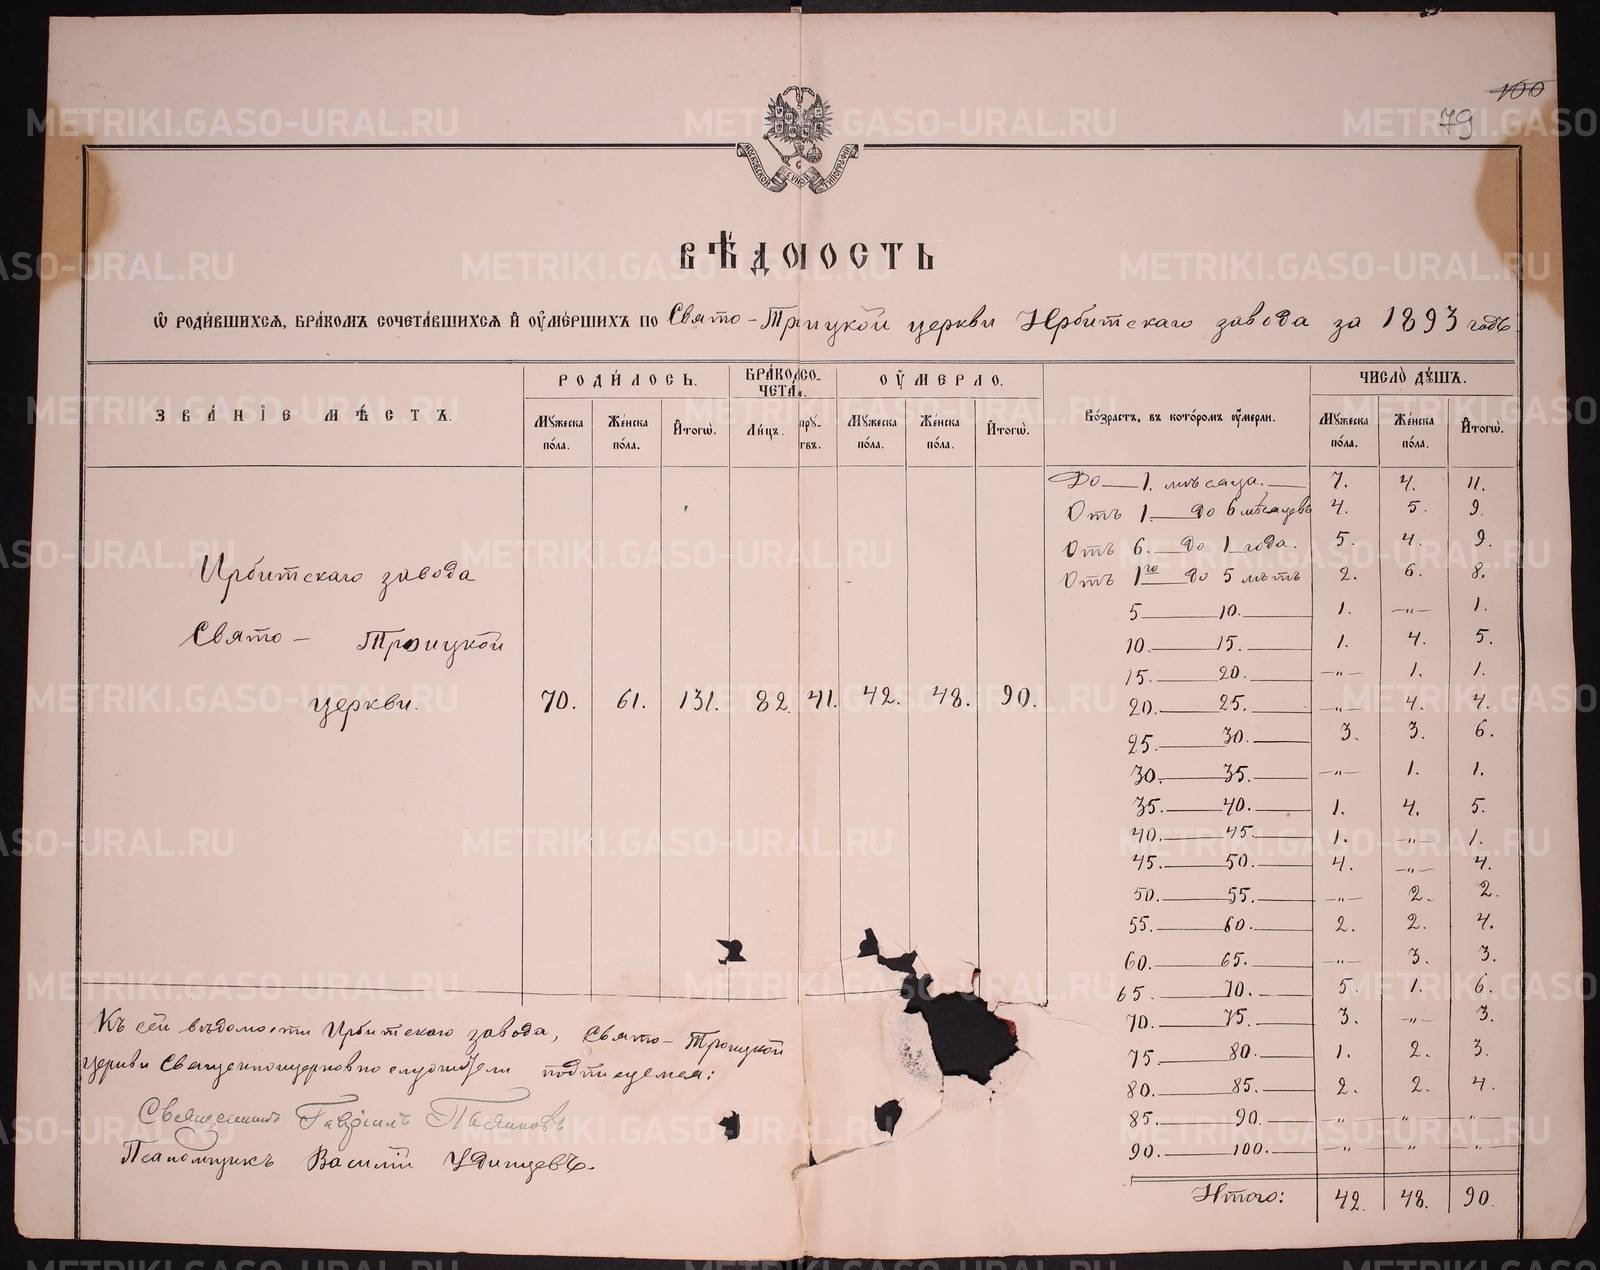 100
79
МОСКОВСКОЙ СѴНОД ТИПОГРАФІИ
ВѢДОМОСТЬ
Ѡ РОДИВШИХСЯ, БРАКОМЪ СОЧЕТАВШИХСЯ И ОУМЕРШИХЪ ПО Свято-Троицкой церкви Ирбитскаго завода за 1893 годъ
ЗВАНІЕ МѢСТЪ. РОДИЛОСЬ. БРАКОСОЧЕТА. ОУМЕРЛО. Возрастъ, въ которомъ оумерли. ЧИСЛО ДУШЪ.
Мужеска пола. Женска пола. Итогѡ. Лицъ. Мужеска пола. Женска пола. Итогѡ. Мужеска пола. Женска пола. Итогѡ.
До 1. мѣсяца. 7. 4. 11.
Отъ 1. до 6 мѣсяцевъ 4. 5. 9.
Отъ 6. до 1 года. 5. 4. 9.
Отъ 1го до 5 лѣтъ 2. 6. 8.
5 10. 1. -"- 1.
10. 15. 1. 4. 5.
15. 20. -"- 1. 1.
20. 25. -"- 4. 4.
25. 30. 3. 3. 6.
30. 35. -"- 1. 1.
35. 40. 1. 4. 5.
40. 45. 1. -"- 1.
45. 50. 4. -"- 4.
50. 55. -"- 2. 2.
55. 60. 2. 2. 4.
60. 65. -"- 3. 3.
65. 70. 5. 1. 6.
70. 75. 3. -"- 3.
75. 80. 1. 2. 3.
80. 85. 2. 2. 4.
85. 90. -"- -"- -"-
90. 100. -"- -"- -"-
Итого: 42. 48. 90.
Ирбитскаго завода
Свято-Троицкой
церкви. 70. 61. 131. 82. 41. 42. 48. 90.
Къ сей вѣдомости Ирбитскаго завода, Свято-Троицкой
церкви Священноцерковнослужители подписуемся:
Священникъ Гавріилъ
Псаломщикъ Василій Удинцевъ.
METRIKI.GASO-URAL.RU